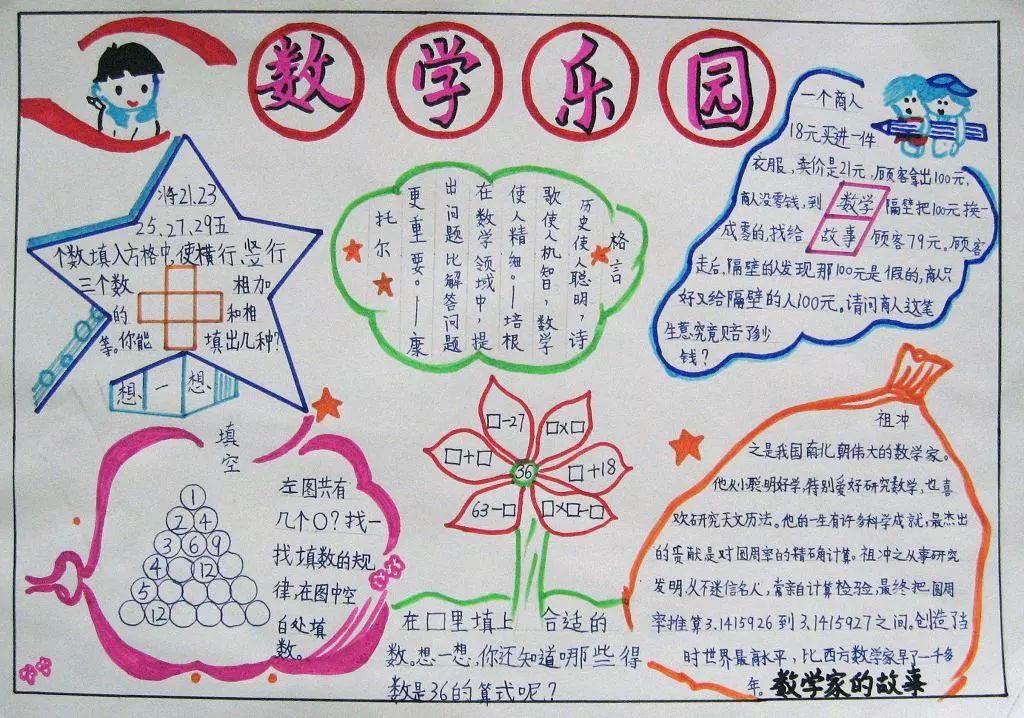 数学乐园
将21.23
25.27.29五
个数填入方格中,使横行、竖行
三个数 相加
的 和相
等。你能 填出几种?
想一想
格言
历史使人聪明,诗
歌使人机智,数学
使人精细。—培根
在数学领域中,提
出问题比解答问题
更重要。——康
托尔
一个商人
18元买进一件
衣服,卖价是21元,顾客拿出100元,
商人没零钱,到 数学 隔壁把100元换
成零的,找给 故事 顾客79元,顾客
走后,隔壁的发现那100元是假的,商人只
好又给隔壁的人100元。请问商人这笔
生意究竟赔了多少
钱?
填空
1
2 4
3 6 9
4 12
5
12
左图共有
几个○?找一
找填数的规
律,在图中空
白处填
数。
36
□-27
□×□
□+□
□+18
63-□
□×□-□
在□里填上 合适的
数。想一想,你还知道哪些得
数是36的算式呢?
祖冲
之是我国南北朝伟大的数学家。
他从小聪明好学,特别爱好研究数学,也喜
欢研究天文历法。他的一生有许多科学成就,最杰出
的贡献是对圆周率的精确计算。祖冲之从事研究
发明,从不迷信名人,常亲自计算检验,最终把圆周
率推算3.1415926到3.1415927之间。创造了当
时世界最高水平,比西方数学家早了一千多
年。 数学家的故事